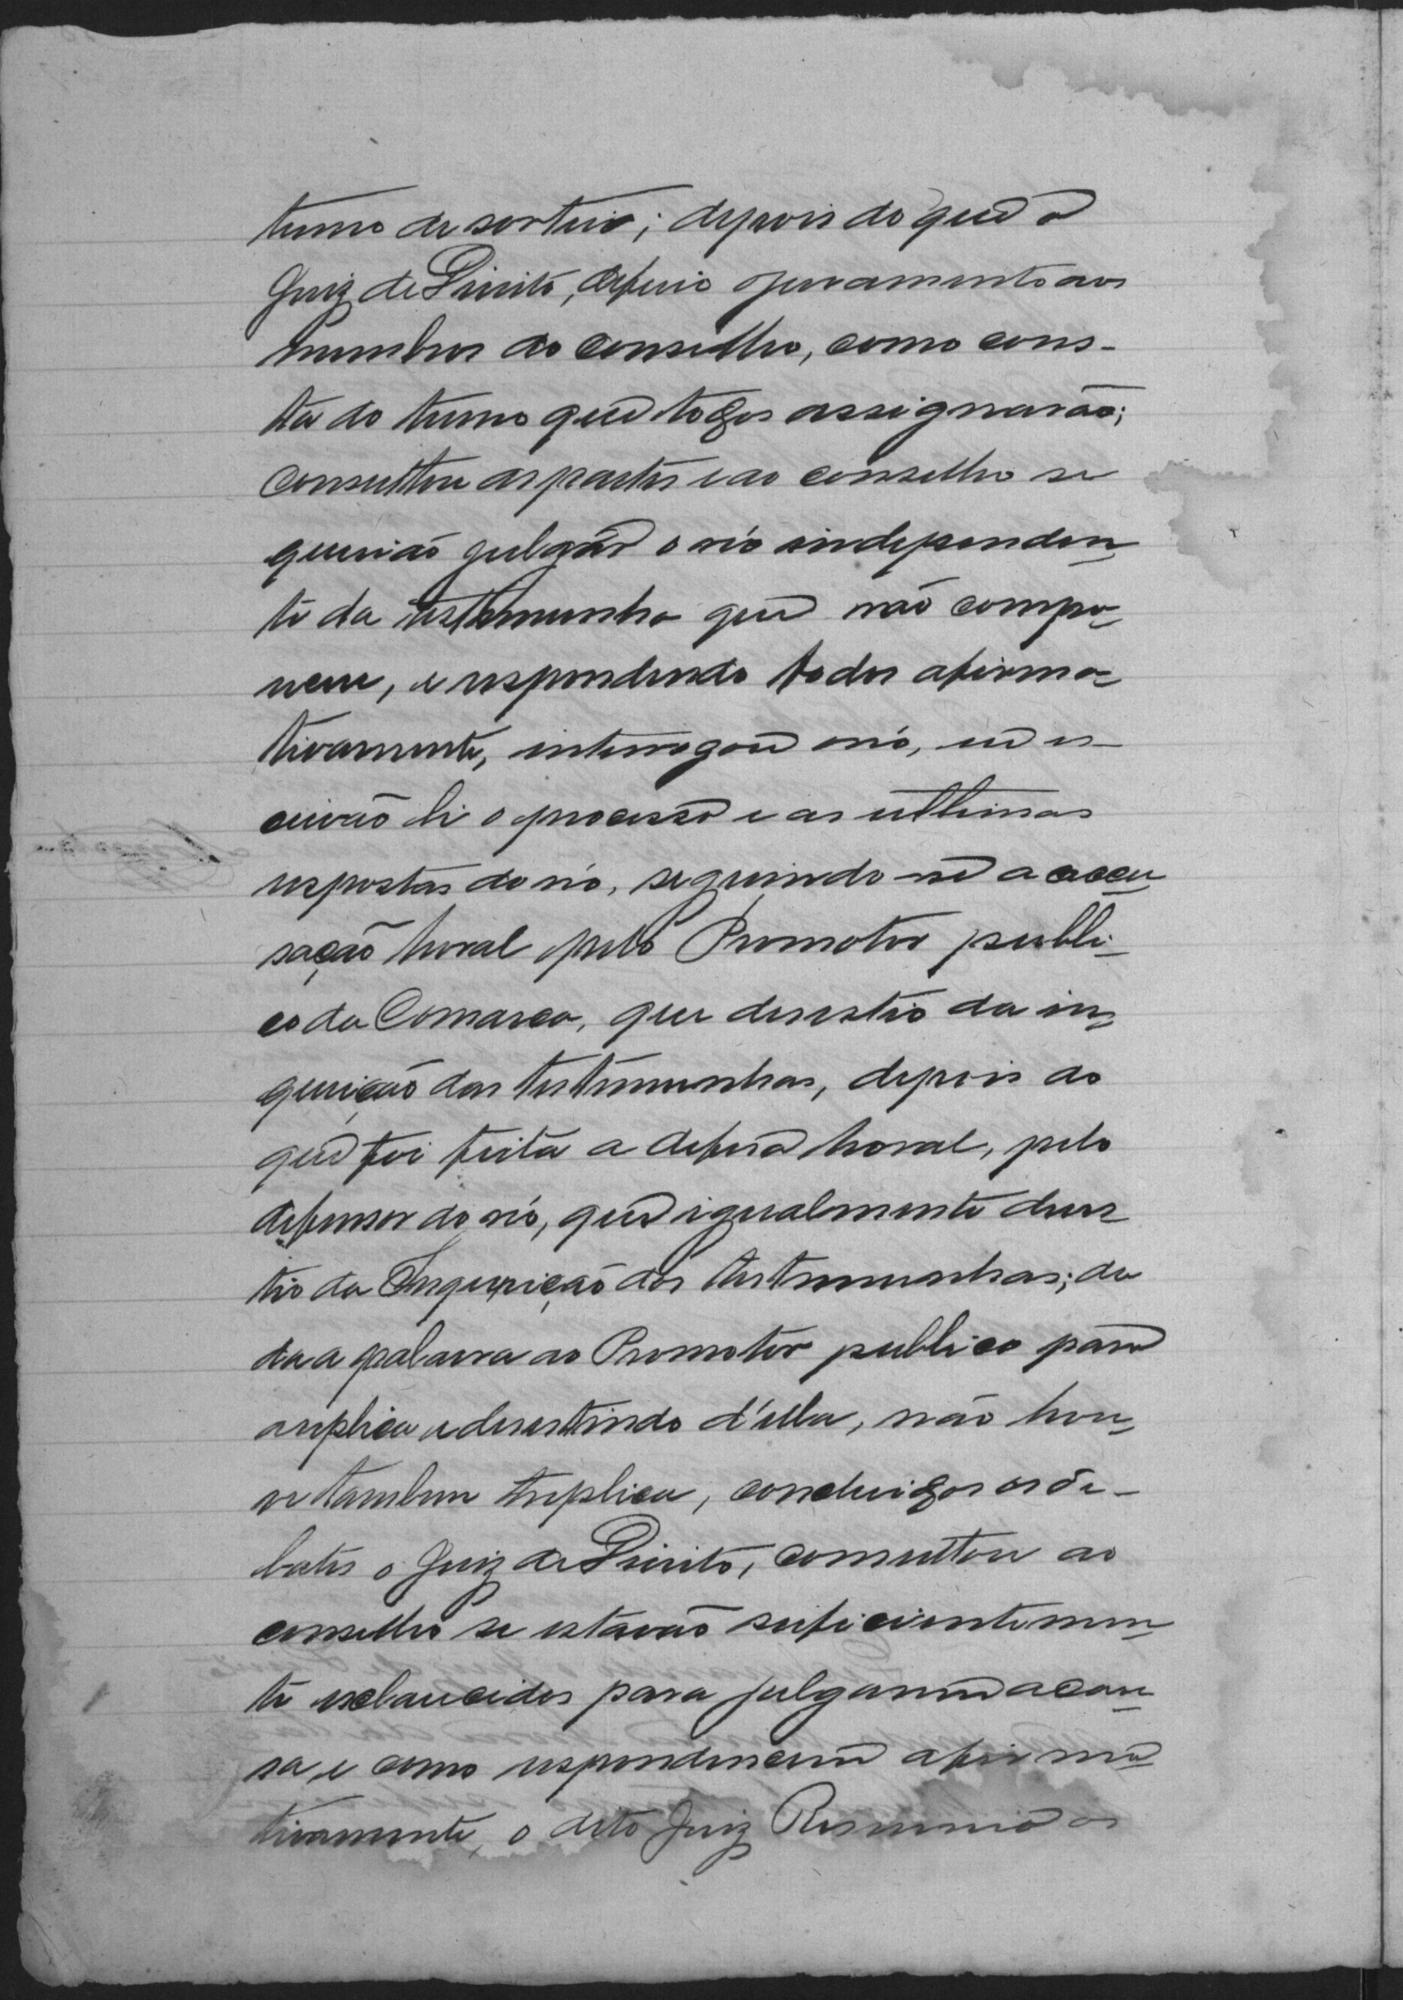 termo de sorteio; depois do que o
Juiz de Direito, deferio o juramento aos
membros do conselho, como cons-
ta do termo que todos assignarão;
consultou as partes e ao conselho se
querião julgar o réo independen-
te da testemunha que não compa-
receu, e respondendo todos afirma-
tivamente, interrogou o réo, eu es-
crivão li o processo e as ultimas
respostas do réo, seguindo-se a accu-
sação horal pelo Promotor publi-
co da Comarca, que desestio da in-
quirição das testemunhas, depois do
que foi feita a defesa horal, pelo
defensor do réo, que igualmente deses-
tio da Inquirição das testemunhas; da
da a palavra ao Promotor publico para
a replica e desestindo d'ella, não hou-
ve tambem treplica, concluidos os de-
bates o Juiz de Direito, consultou ao
conselho se estavão suficientemen-
te esclarecidos para julgarem a cau-
sa, e como responderem afirma
tivamente, o dito Juiz Resumio os